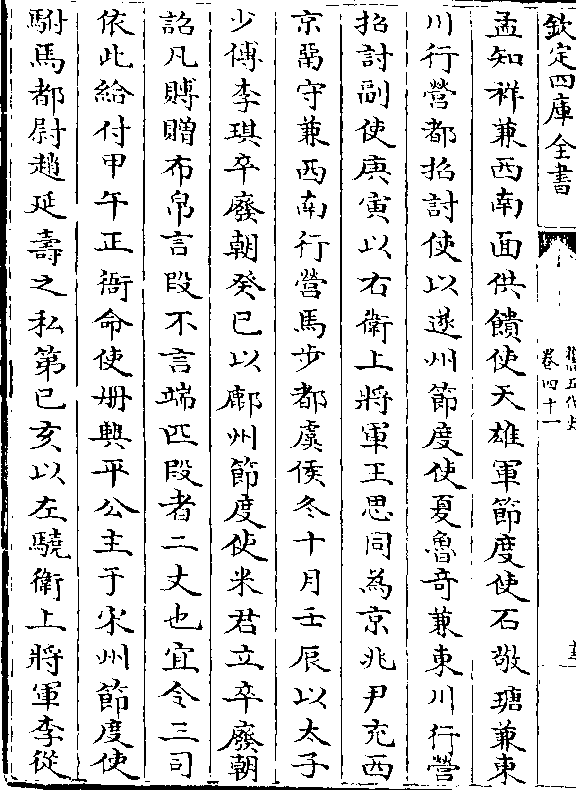 欽定四庫全書
舊五代史
卷四十一
孟知祥兼西南面供饋使天雄軍節度使石敬瑭兼東
川行營都招討使以遂州節度使夏魯竒兼東川行營
招討副使庚寅以右衛上將軍王思同為京兆尹充西
京畱守兼西南行營馬步都虞𠋫冬十月壬辰以太子
少傅李琪卒廢朝癸巳以鄜州節度使米君立卒廢朝
詔凡賻贈布帛言段不言端匹段者二丈也宜令三司
依此給付甲午正衙命使冊興平公主于宋州節度使
駙馬都尉趙延壽之私第己亥以左驍衛上將軍李從